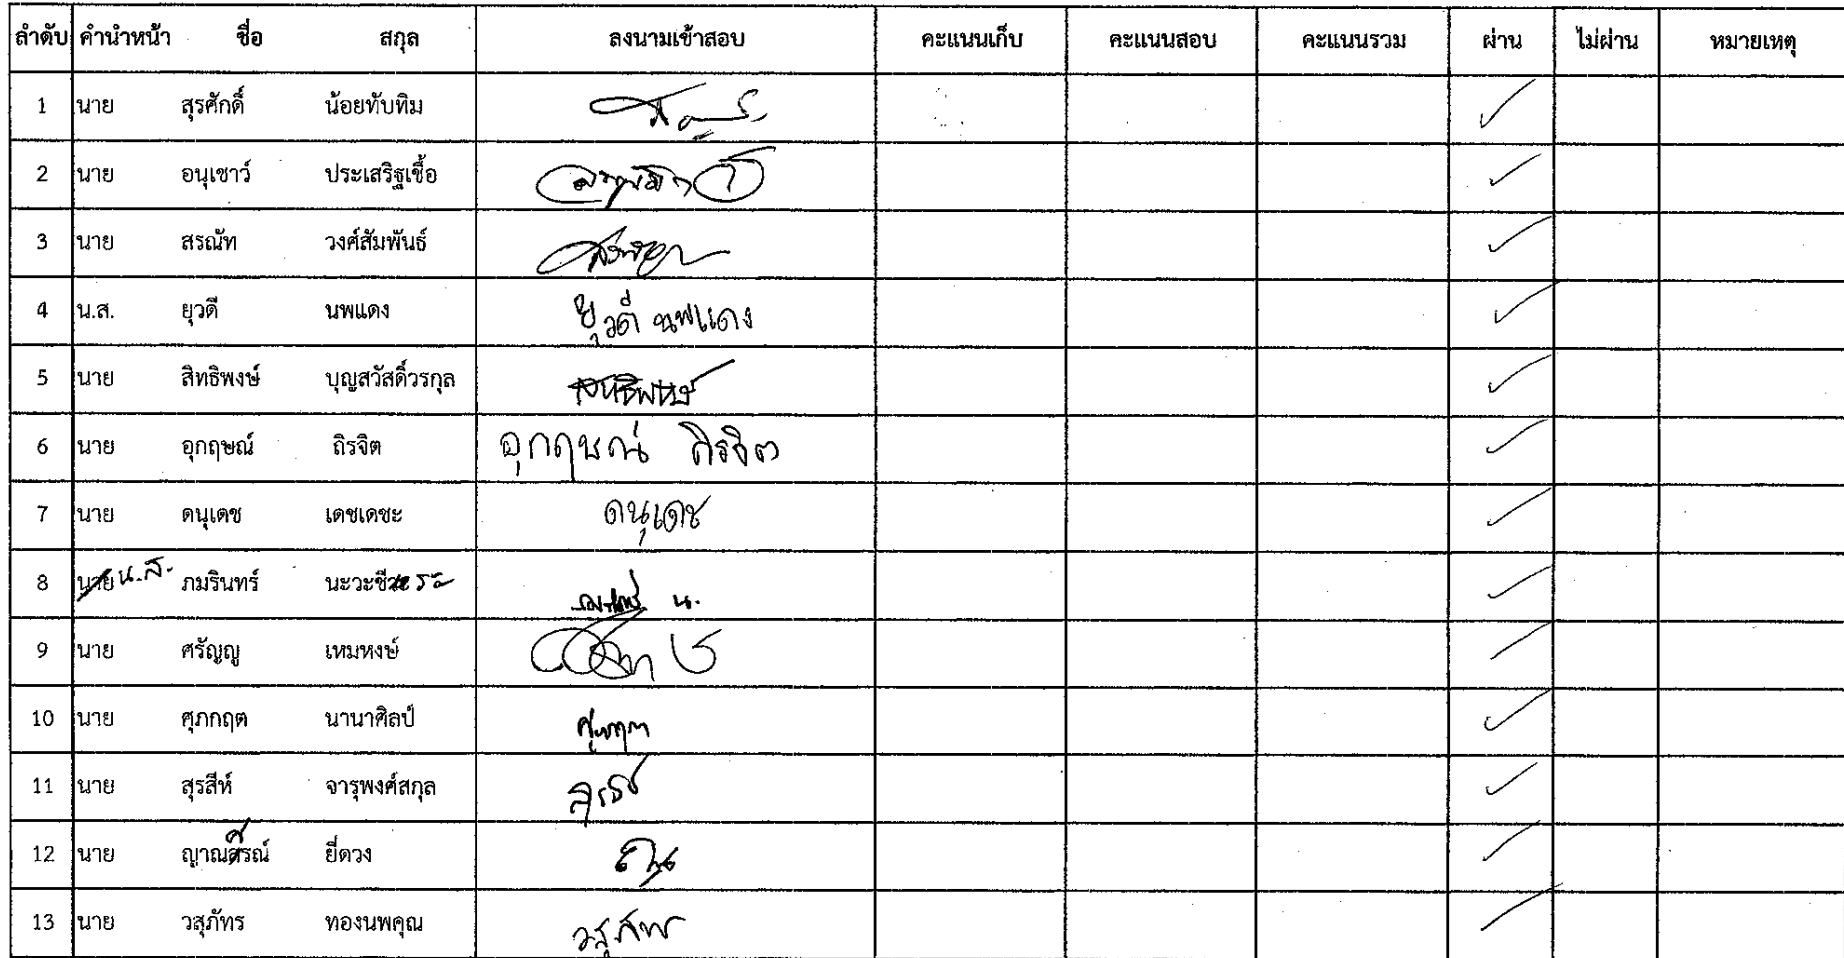 ลำดับ คำนำหน้า ชื่อ สกุล ลงนามเข้าสอบ คะแนนเก็บ คะแนนสอบ คะแนนรวม ผ่าน ไม่ผ่าน หมายเหตุ
1 นาย สุรศักดิ์ น้อยทับทิม ✓
2 นาย อนุเชาว์ ประเสริฐเชื้อ ✓
3 นาย สรณัท วงศ์สัมพันธ์ ✓
4 น.ส. ยุวดี นพแดง ยุวดี นพแดง ✓
5 นาย สิทธิพงษ์ บุญสวัสดิ์วรกุล สิทธิพงษ์ ✓
6 นาย อุกฤษณ์ ถิรจิต อุกฤษณ์ ถิรจิต ✓
7 นาย ดนุเดช เดชเดชะ ดนุเดช ✓
8 นาย น.ส. ภมรินทร์ นะวะชีระ น. ✓
9 นาย ศรัญญู เหมหงษ์ ✓
10 นาย ศุภกฤต นานาศิลป์ ศุภกฤต ✓
11 นาย สุรสีห์ จารุพงศ์สกุล สุรสีห์ ✓
12 นาย ญาณศรณ์ ยี่ดวง ✓
13 นาย วสุภัทร ทองนพคุณ วสุภัทร ✓